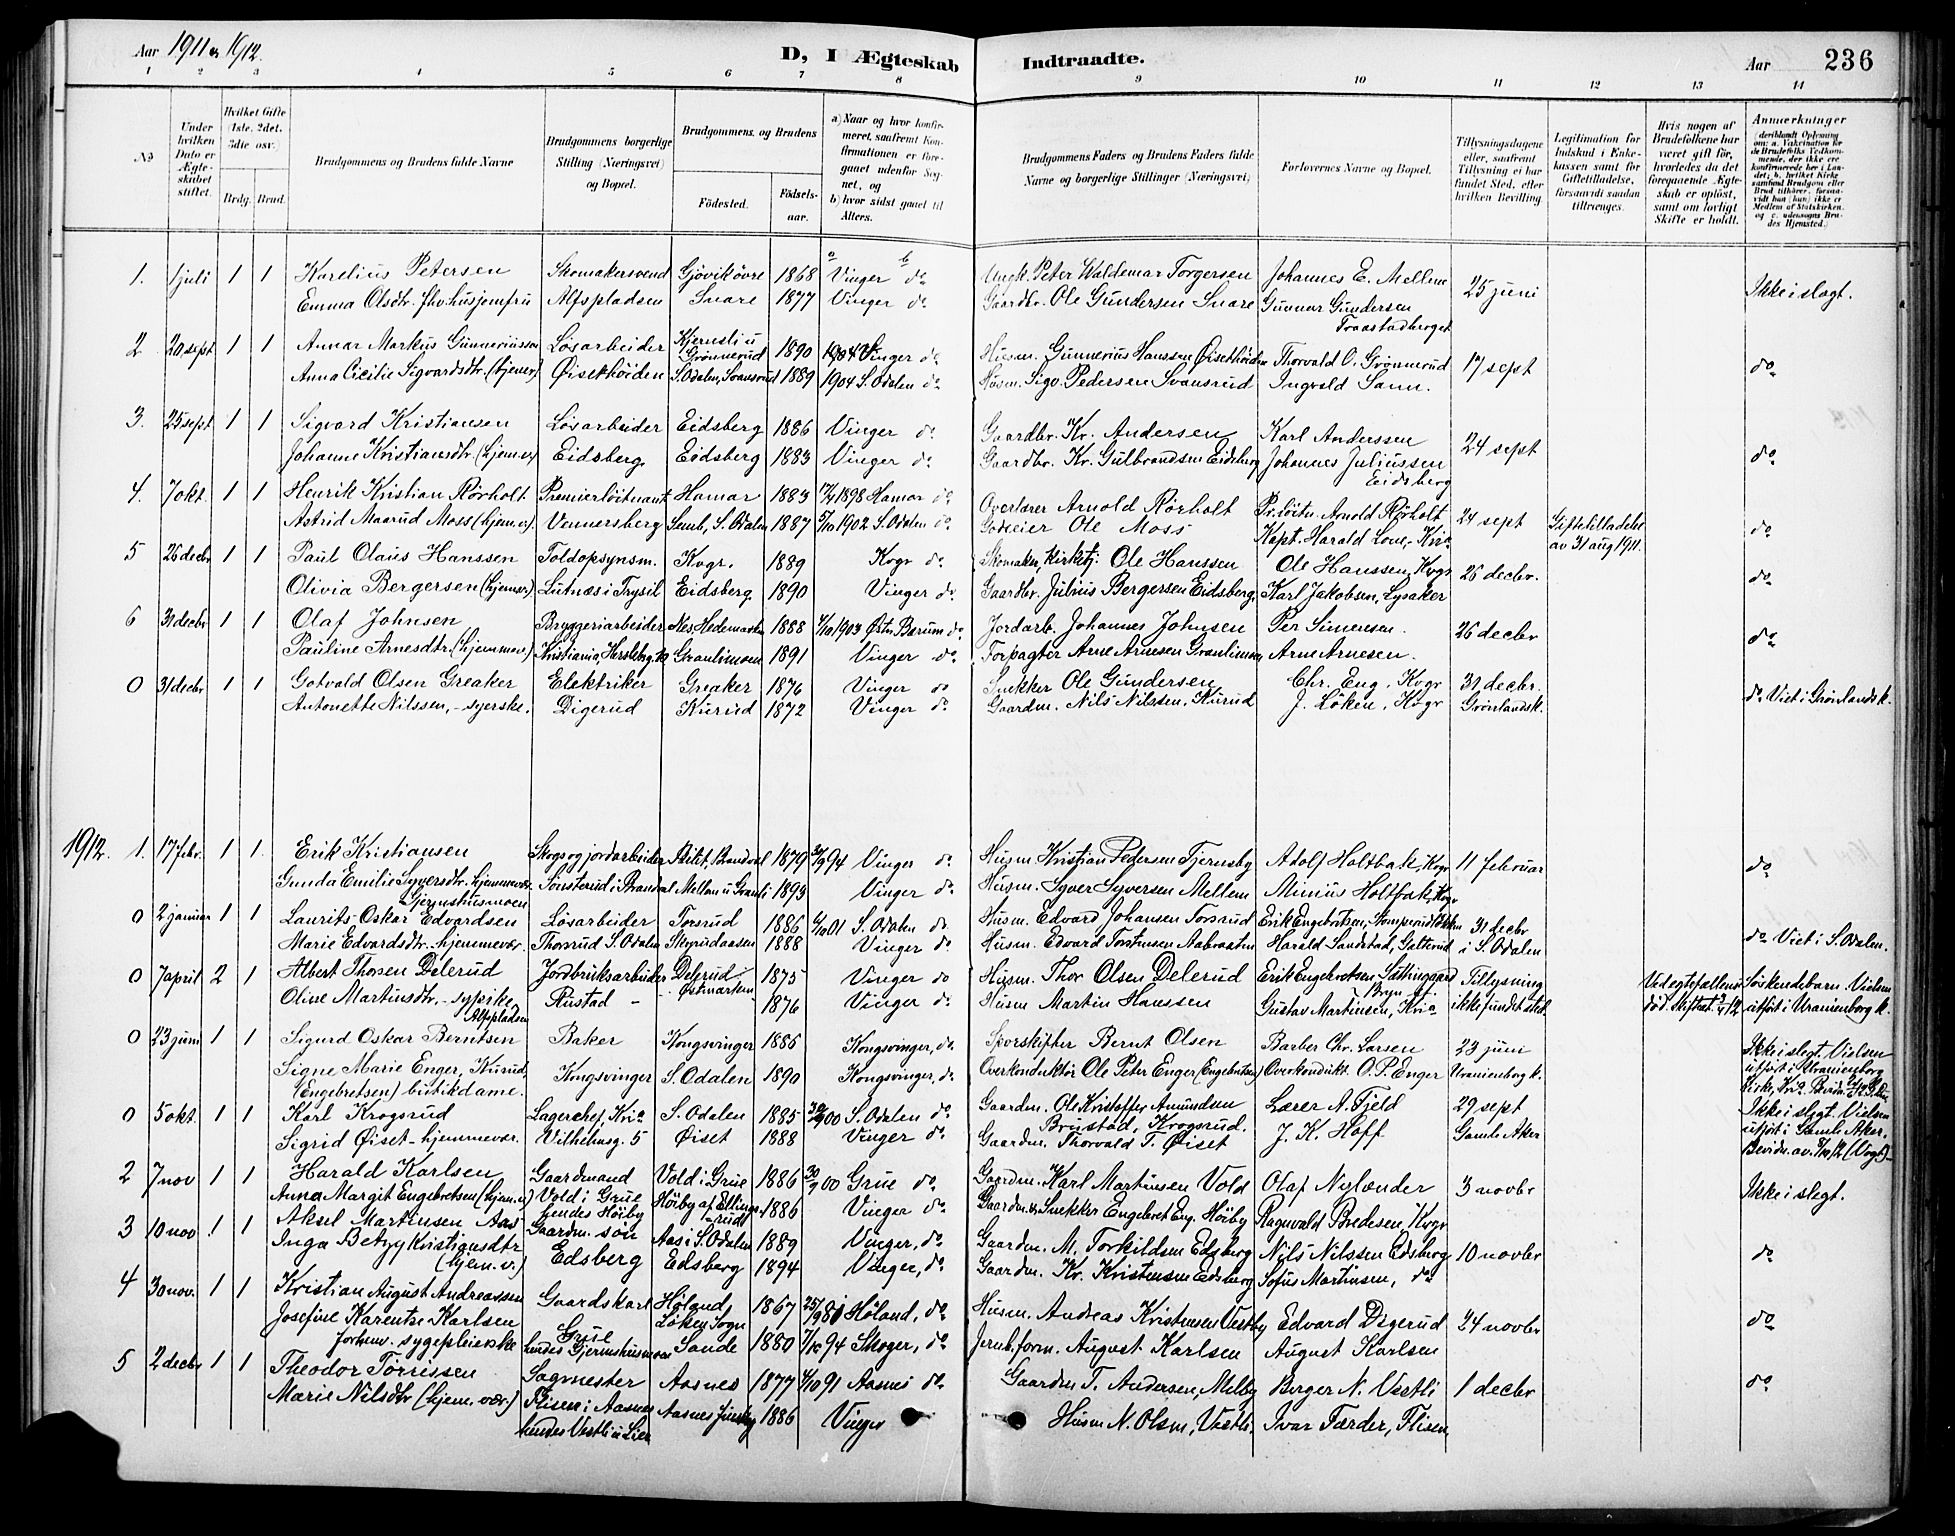 Aar 1911 & 1912.
D, I Ægteskab Indtraadte.
Aar 236
1 2 3 4 5 6 7 8 9 10 11 12 13 14
No
Under hvilken Dato er Ægteskabet stiftet.
Hvilket Gifte (1ste, 2det, 3die osv.)
Brdg. Brud.
Brudgommens og Brudens fulde Navne
Brudgommens borgerlige Stilling (Næringsvei) og Bopæl.
Brudgommens og Brudens
Fødested. Fødselsaar.
a) Naar og hvor konfirmeret, saafremt Konfirmationen er foregaaet udenfor Sognet, og
b) hvor sidst gaaet til Alters.
Brudgommens Faders og Brudens Faders fulde Navne og borgerlige Stillinger (Næringsvei)
Forlovernes Navne og Bopæl.
Tillysningsdagene eller, saafremt Tillysning ei har fundet Sted, efter hvilken Bevilling
Legitimation for Indskud i Enkekassen samt for Giftetilladelse, forsaavidt saadan tiltrænges.
Hvis nogen af Brudefolkene har været gift før, hvorledes da det foregaaende Ægteskab er opløst, samt om lovligt Skifte er holdt.
Anmerkninger (deriblandt Oplysning om: a. Vakcination for de Brudefolks Vedkommende, der ikke ere konfirmerede her i Landet; b. hvilket Kirkesamfund Brudgom eller Brud tilhører, forsaavidt han (hun) ikke er Medlem af Statskirken, og c. udensogns Brudes Hjemsted.)
1. 1 juli 1 1 Karelius Petersen Skomakersvend Gjøvik øvre 1868 Vinger do Ungk. Peter Waldemar Torgersen Johannes E. Mellem 25 juni Ikke i slegt.
Emma Olsdtr. fhv. husjomfru Alfspladsen Snare 1877 Vinger do Gaardbr. Ole Gundersen Snare Gunnar Gundersen Traastadberget
2 20 sept 1 1 Annar Markus Gunneriussen Løsarbeider Kjernsli u Grønnerud 1890 1904 Vinger do Husm. Gunnerius Hanssen Øisethøiden Thorvald O. Grønnerud 17 sept do
Anna Cicilie Sigvardsdtr. (hjemv) Øisethøiden S. Odalen, Svansrud 1889 1904 S. Odalen do Husm. Sigv. Pedersen Svansrud Ingvald Sann.
3. 25 sept 1 1 Sigvard Kristiansen Løsarbeider Eidsberg 1886 Vinger do Gaardbr. Kr. Andersen Karl Anderssen 24 sept do
Johanne Kristiansdtr. (hjem.v) Eidsberg. Eidsberg 1883 Vinger do Gaardbr. Kr. Gulbrandsen Eidsberg Johannes Juliussen Eidsberg
4. 7 okt. 1 1 Henrik Kristian Rørholt Premierløitnant Hamar 1883 1898 Hamar do Overlærer Arnold Rørholt Pr. løitn. Arnold Rørholt 24 sept Giftetilladelse av 31 aug 1911. do
Astrid Maarud Moss (hjem.v). Vennersberg Semb, S. Odalen 1887 5/10 1902 S. Odalen do Godseier Ole Moss Kapt. Harald Love, Kria
5 26 decbr 1 1 Paul Olaus Hanssen Toldopsynsm. Kvgr. 1889 Kvgr do Skomaker, kirketj. Ole Hanssen Ole Hanssen, Kvgr 26 decbr. do
Olivia Bergersen (hjemv) Lutnæs i Trysil Eidsberg. 1890 Vinger do Gaardbr. Julius Bergersen Eidsberg. Karl Jakobsen, Lysaker
6 31 decbr 1 1 Olaf Johnsen Bryggeriarbeider Nes, Hedemarken 1888 4/10 1903 Østre Bærum do Jordarb. Johannes Johnsen Per Simensen. 26 decbr do
Pauline Arnesdtr. (hjemmev.) Kristiania, Herslebg. Granlimoen 1891 Vinger do Forpagter Arne Arnesen Granlimoen Arne Arnesen.
0 31 decbr 1 1 Gotvald Olsen Greaker Elektriker Greaker 1876 Vinger do Snekker Ole Gundersen Chr. Eng, Kvgr 31 decbr. do Viet i Grønlands k.
Antonette Nilssen, - syerske. Digerud Kurud 1872 Vinger do Gaardm. Nils Nilssen, Kurud J. Løken, Kvgr Grønlandsk.
1912. 1. 17 febr. 1 1 Erik Kristiansen Skogs og jordarbeider Brandval 1879 94 Vinger do Husm. Kristian Pedersen Tjernsby Adolf Holtbak, Kvgr 11 februar do
Gunda Emilie Syversdtr. hjemmevær. Gjermshusmoen Tønsterud i Brandval Mellem u Granli 1893 Vinger do Husm. Syver Syversen Mellem Minius Holtbak, Kvgr
0 2 januar 1 1 Laurits Oskar Edvardsen Løsarbeider Torsrud 1886 01 S. Odalen do Husm. Edvard Johansen Torsrud Erik Engebretsen, 31 decbr do Viet i S. Odalen.
Marie Edvardsdtr. hjemmevær. Thorsrud S. Odalen Skyrudaasen 1888 Vinger do Husm. Edvard Torstensen Aabraaten Harild Sandstad, Galterud i S. Odalen
0 7 april 2 1 Albert Thorsen Delerud Jordbruksarbeider Delerud Østmarken 1875 Vinger do Husm. Thor Olsen Delerud Erik Engebretsen Sættingaard Bryn Tillysning Ved egtefællens Søskendebarn. Vielsen
Oline Martinsdtr, - sypike Alfspladsen Rustad - 1876 Vinger do Husm Martin Hanssen Gustav Martinsen, Kria ikke fundet sted død. Skifteat. 12 utført i Uranienborg k.
0 23 juni 1 1 Sigurd Oskar Berntsen Baker Kongsvinger 1886 Kongsvinger, do Sporskifter Bernt Olsen Barber Chr. Larsen 23 juni Ikke i slegt. Vielsen utført i Uranienborg Kirke, Kria.
Signe Marie Enger, Kurud, (Engebretsen) butikdame. Kongsvinger S. Odalen 1890 Kongsvinger, do Overkonduktør Ole Peter Enger (Engebretsen) Overkondukt. O. P. Enger Uranienborg k.
0 5 okt. 1 1 Karl Krogsrud Lagerchef, Kria S. Odalen 1885 00 S. Odalen do Gaardm. Ole Kristoffer Amundsen Brustad, Krogsrud. Lærer A. Fjeld 29 sept Ikke i slegt. Vielsen utført i Gamle Aker.
Sigrid Øiset - hjemmevær. Vilhelmsg. 5 Øiset 1888 Vinger do Gaardm. Thorvald T. Øiset J. K. Hoff Gamle Aker Bevidn. av 8/10 12 (Vogt) -
2 7 nov 1 1 Harald Karlsen Gaardmand Vold i Grue Vold i Grue 1886 00 Grue do Gaardm. Karl Martinsen Vold Olaf Nylænder 3 novbr Ikke i slegt.
Anna Margit Engebretsen (hjem.v) hendes Høiby Høiby af Ellingsrud 1886 Vinger do Gaardm. & Snekker Engebret Eng. Høiby Ragnvald Bredesen, Kvgr
3 10 nov 1 1 Aksel Martinsen Aas Gaardm. søn Aas i S. Odalen 1889 Vinger, do Gaardm. M. Torkildsen Edsberg Nils Nilssen Edsberg 10 novbr do
Inga Betzy Kristiansdtr (hjem. v.) Edsberg Edsberg 1894 Vinger, do Gaardm. Kr. Kristensen Eidsberg Sofus Martinsen, do
4 30 nov. 1 1 Kristian August Andreassen Gaardskarl Grue Høland, Løken Sogn 1867 Høland, do Husm. Andreas Kristensen Vestby Edvard Digerud 24 novbr do
Josefine Karentse Karlsen forhenv. sygepleierske hendes Gjermshusmoen Sande 1880 94 Skoger, do Jernb. form. August Karlsen August Karlsen
5 2 decbr 1 1 Theodor Tørrissen Sagmester Flisen i Aasnes Aasnes 1877 91 Aasnes do Gaardm T. Andersen, Melby Berger N. Vestli 1 decbr do
Marie Nilsdtr (hjem. vær.) hendes Vestli u Lier Aasnes 1886 Vinger Husm N. Olsen, Vestli. Ivar Færder, Flisen,